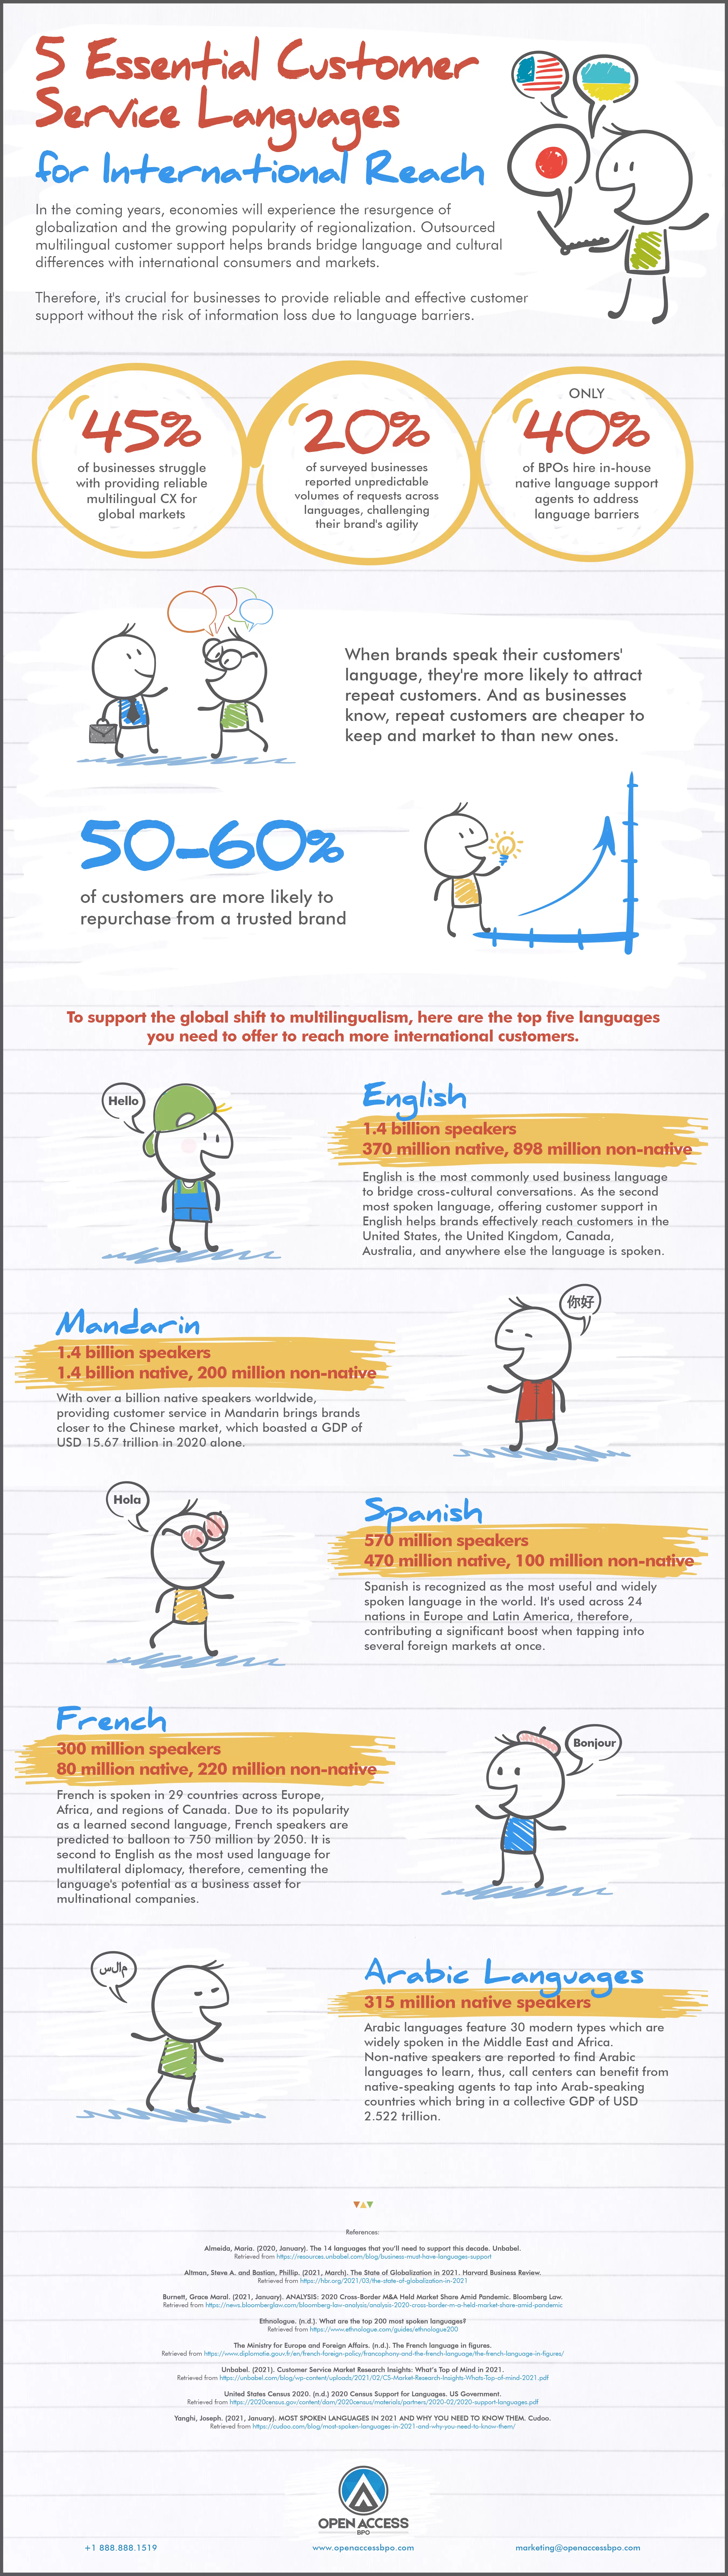 5 Essential Customer
Service Languages
for International Reach
In the coming years, economies will experience the resurgence of
globalization and the growing popularity of regionalization. Outsourced
multilingual customer support helps brands bridge language and cultural
differences with international consumers and markets.
Therefore, it's crucial for businesses to provide reliable and effective customer
support without the risk of information loss due to language barriers.
45%
of businesses struggle
with providing reliable
multilingual CX for
global markets
20%
of surveyed businesses
reported unpredictable
volumes of requests across
languages, challenging
their brand's agility
ONLY
40%
of BPOs hire in-house
native language support
agents to address
language barriers
When brands speak their customers'
language, they're more likely to attract
repeat customers. And as businesses
know, repeat customers are cheaper to
keep and market to than new ones.
50-60%
of customers are more likely to
repurchase from a trusted brand
To support the global shift to multilingualism, here are the top five languages
you need to offer to reach more international customers.
Hello
English
1.4 billion speakers
370 million native, 898 million non-native
English is the most commonly used business language
to bridge cross-cultural conversations. As the second
most spoken language, offering customer support in
English helps brands effectively reach customers in the
United States, the United Kingdom, Canada,
Australia, and anywhere else the language is spoken.
你好
Mandarin
1.4 billion speakers
1.4 billion native, 200 million non-native
With over a billion native speakers worldwide,
providing customer service in Mandarin brings brands
closer to the Chinese market, which boasted a GDP of
USD 15.67 trillion in 2020 alone.
Hola
Spanish
570 million speakers
470 million native, 100 million non-native
Spanish is recognized as the most useful and widely
spoken language in the world. It's used across 24
nations in Europe and Latin America, therefore,
contributing a significant boost when tapping into
several foreign markets at once.
French
300 million speakers
80 million native, 220 million non-native
French is spoken in 29 countries across Europe,
Africa, and regions of Canada. Due to its popularity
as a learned second language, French speakers are
predicted to balloon to 750 million by 2050. It is
second to English as the most used language for
multilateral diplomacy, therefore, cementing the
language's potential as a business asset for
multinational companies.
Bonjour
مالس
Arabic Languages
315 million native speakers
Arabic languages feature 30 modern types which are
widely spoken in the Middle East and Africa.
Non-native speakers are reported to find Arabic
languages to learn, thus, call centers can benefit from
native-speaking agents to tap into Arab-speaking
countries which bring in a collective GDP of USD
2.522 trillion.
References:
Almeida, Maria. (2020, January). The 14 languages that you'll need to support this decade. Unbabel.
Retrieved from https://resources.unbabel.com/blog/business-must-have-languages-support
Altman, Steve A. and Bastian, Phillip. (2021, March). The State of Globalization in 2021. Harvard Business Review.
Retrieved from https://hbr.org/2021/03/the-state-of-globalization-in-2021
Burnett, Grace Maral. (2021, January). ANALYSIS: 2020 Cross-Border M&A Held Market Share Amid Pandemic. Bloomberg Law.
Retrieved from https://news.bloomberglaw.com/bloomberg-law-analysis/analysis-2020-cross-border-m-a-held-market-share-amid-pandemic
Ethnologue. (n.d.). What are the top 200 most spoken languages?
Retrieved from https://www.ethnologue.com/guides/ethnologue200
The Ministry for Europe and Foreign Affairs. (n.d.). The French language in figures.
Retrieved from https://www.diplomatie.gouv.fr/en/french-foreign-policy/francophony-and-the-french-language/the-french-language-in-figures/
Unbabel. (2021). Customer Service Market Research Insights: What's Top of Mind in 2021.
Retrieved from https://unbabel.com/blog/wp-content/uploads/2021/02/CS-Market-Research-Insights-Whats-Top-of-mind-2021.pdf
United States Census 2020. (n.d.) 2020 Census Support for Languages. US Government.
Retrieved from https://2020census.gov/content/dam/2020census/materials/partners/2020-02/2020-support-languages.pdf
Yanghi, Joseph. (2021, January). MOST SPOKEN LANGUAGES IN 2021 AND WHY YOU NEED TO KNOW THEM. Cudoo.
Retrieved from https://cudoo.com/blog/most-spoken-languages-in-2021-and-why-you-need-to-know-them/
OPEN ACCESS
BPO
+1 888.888.1519
www.openaccessbpo.com
marketing@openaccessbpo.com